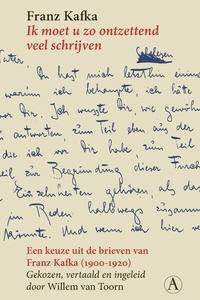 Franz Kafka
Ik moet u zo ontzettend
veel schrijven
Schelesen
Vater,
Du hast mich letzthin einmal
warum ich behaupte, ich hätte
vor Dir. Ich wusste Dir, wie gewöhn
antworten, zum Teil eben aus der
die ich vor Dir habe zum Teil
zur Begründung dieser Furcht
Einzelnheiten gehören, als das
im Reden halbwegs zusammen
könnte. Und wenn ich hier
Een keuze uit de brieven van
Franz Kafka (1900-1920)
Gekozen, vertaald en ingeleid
door Willem van Toorn
A